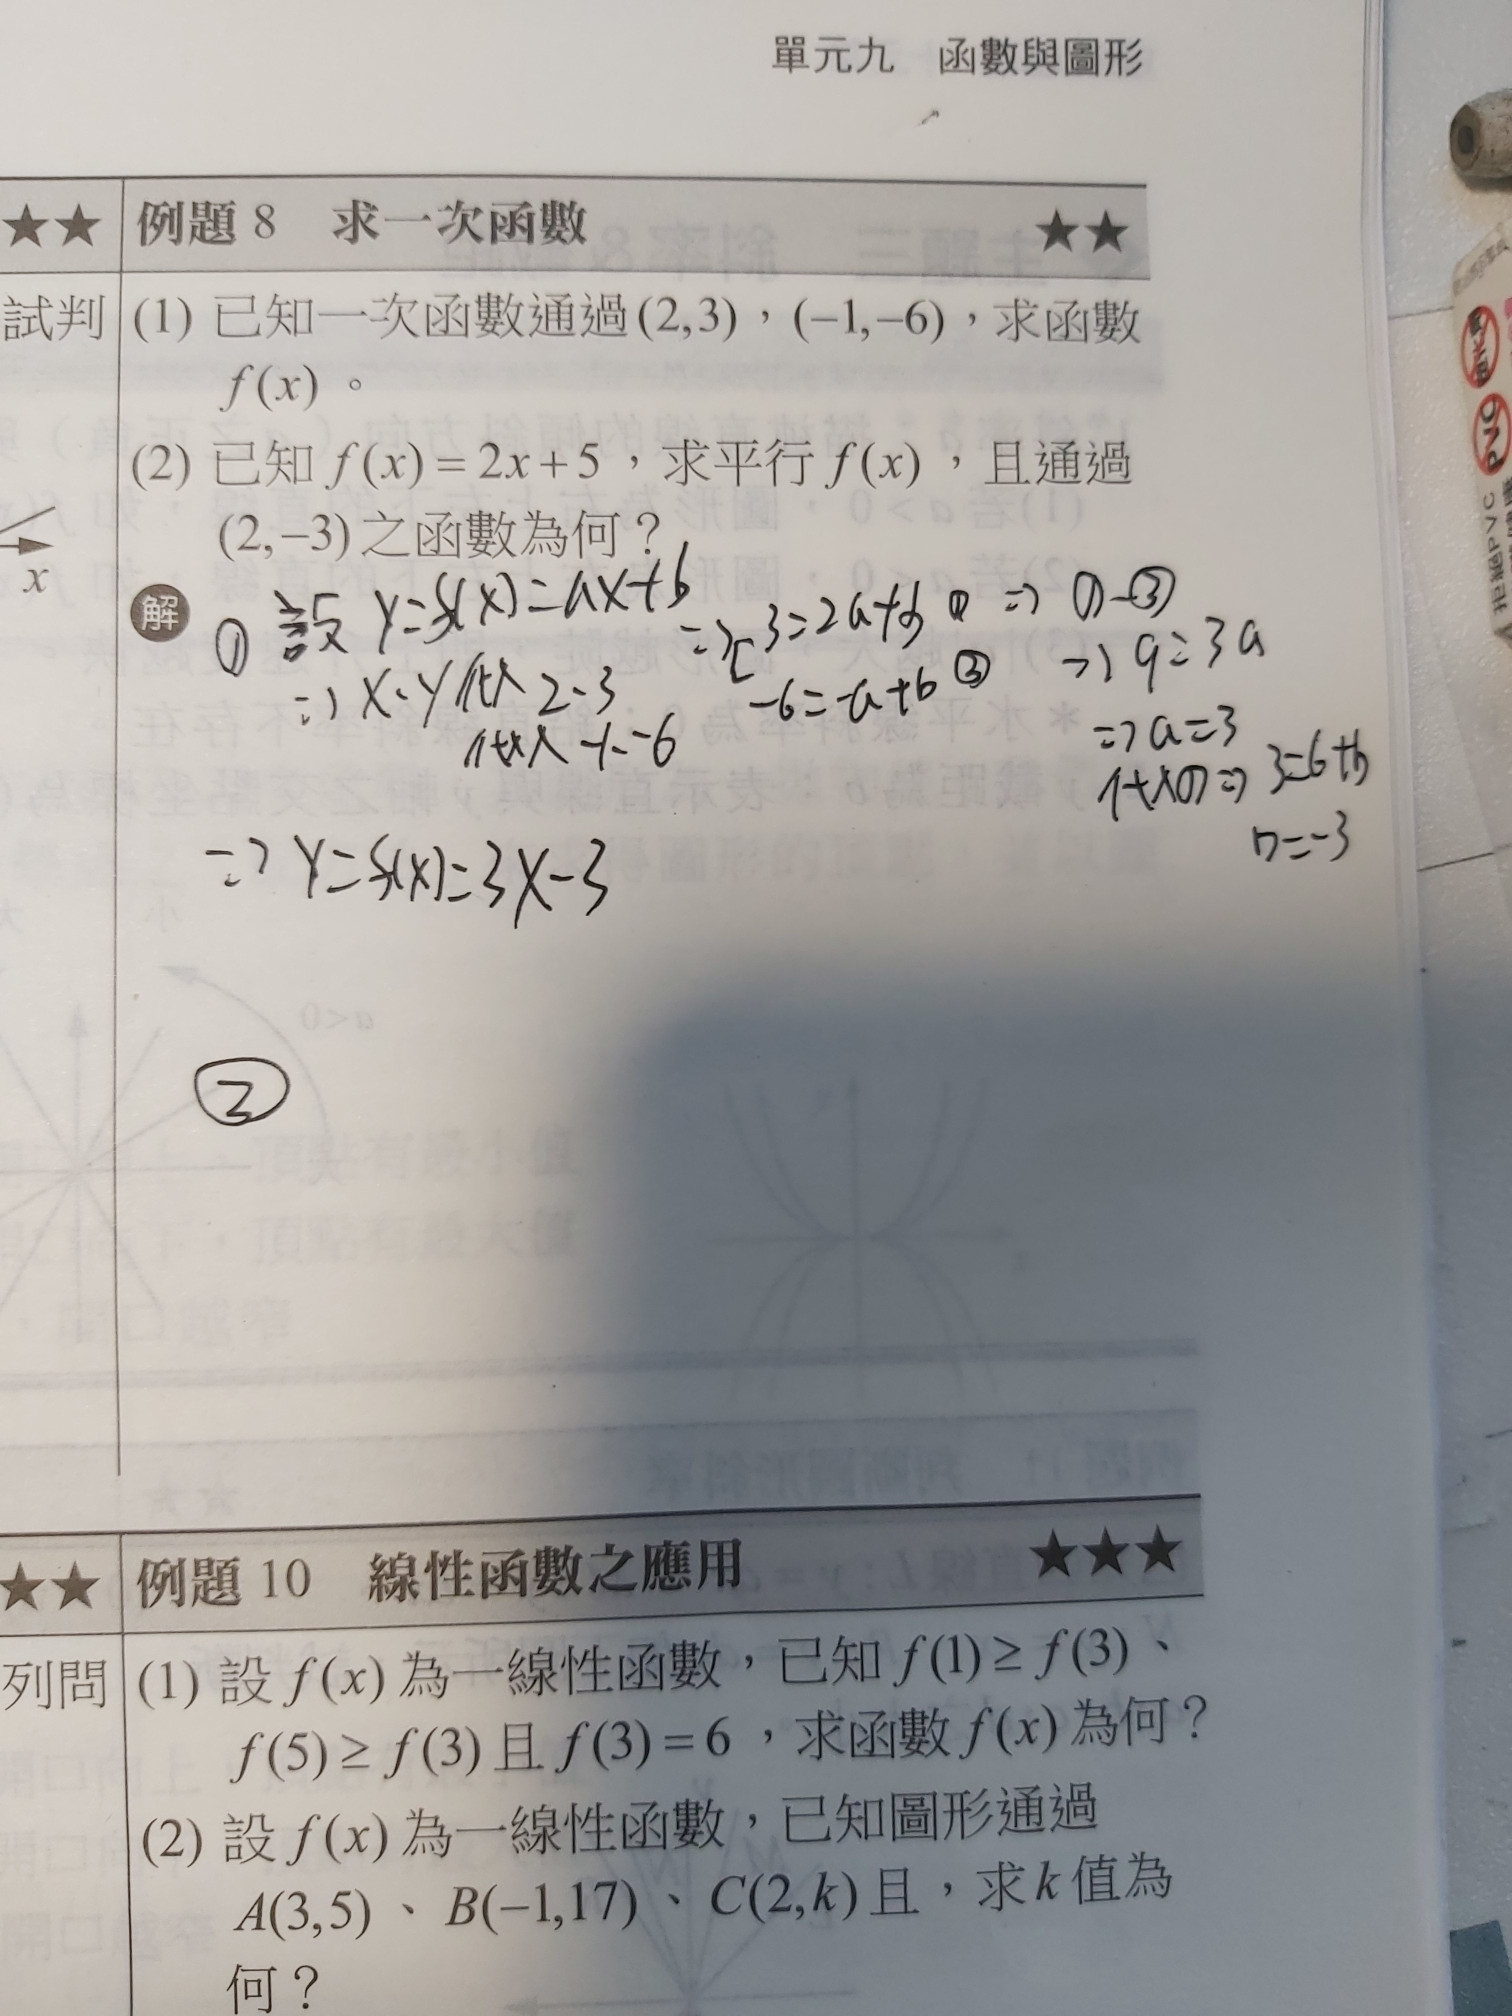 單元九 函數與圖形
★★
例題 8 求一次函數 ★★
試判
(1) 已知一次函數通過(2,3)，(−1,−6)，求函數
f(x)。
(2) 已知 f(x)=2x+5，求平行 f(x)，且通過
(2,−3)之函數為何？
x
解
① 設 y=f(x)=ax+b
⇒ x、y代入 2、3
代入 -1、-6
⇒ { 3=2a+b ①
-6=-a+b ②
⇒ ①-②
⇒ 9=3a
⇒ a=3
代入①⇒ 3=6+b
b=-3
⇒ y=f(x)=3x-3
②
★★
例題 10 線性函數之應用 ★★★
列問
(1) 設 f(x) 為一線性函數，已知 f(1)≥f(3)、
f(5)≥f(3) 且 f(3)=6，求函數 f(x) 為何？
(2) 設 f(x) 為一線性函數，已知圖形通過
A(3,5)、B(−1,17)、C(2,k) 且，求 k 值為
何？